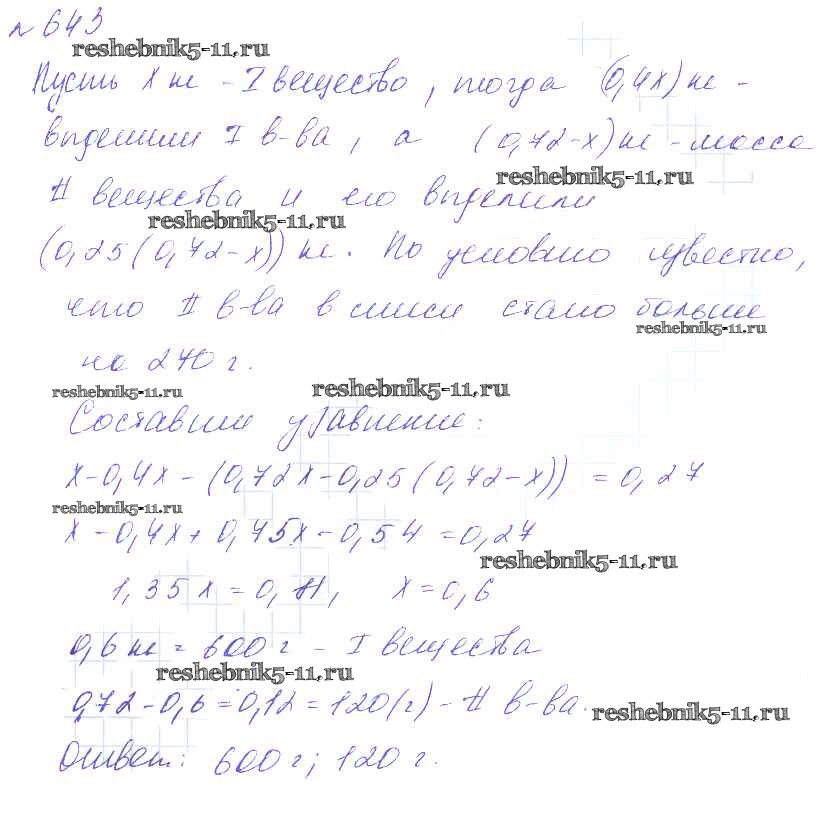 № 643
reshebnik5-11.ru
Пусть х кг - I вещество, тогда (0,4х) кг -
выделили I в-ва, а (0,72-х) кг - масса
reshebnik5-11.ru
II вещества и его выделили
reshebnik5-11.ru
(0,25(0,72-х)) кг. По условию известно,
что II в-ва в смеси стало больше
reshebnik5-11.ru
на 270 г.
reshebnik5-11.ru reshebnik5-11.ru
Составим уравнение:
х-0,4х-(0,72х-0,25(0,72-х)) = 0,27
reshebnik5-11.ru
х-0,4х+0,45х-0,54=0,27
reshebnik5-11.ru
1,35х=0,81, х=0,6
0,6 кг = 600 г - I вещества
reshebnik5-11.ru
0,72-0,6=0,12=120(г)- II в-ва.
reshebnik5-11.ru
Ответ: 600 г; 120 г.